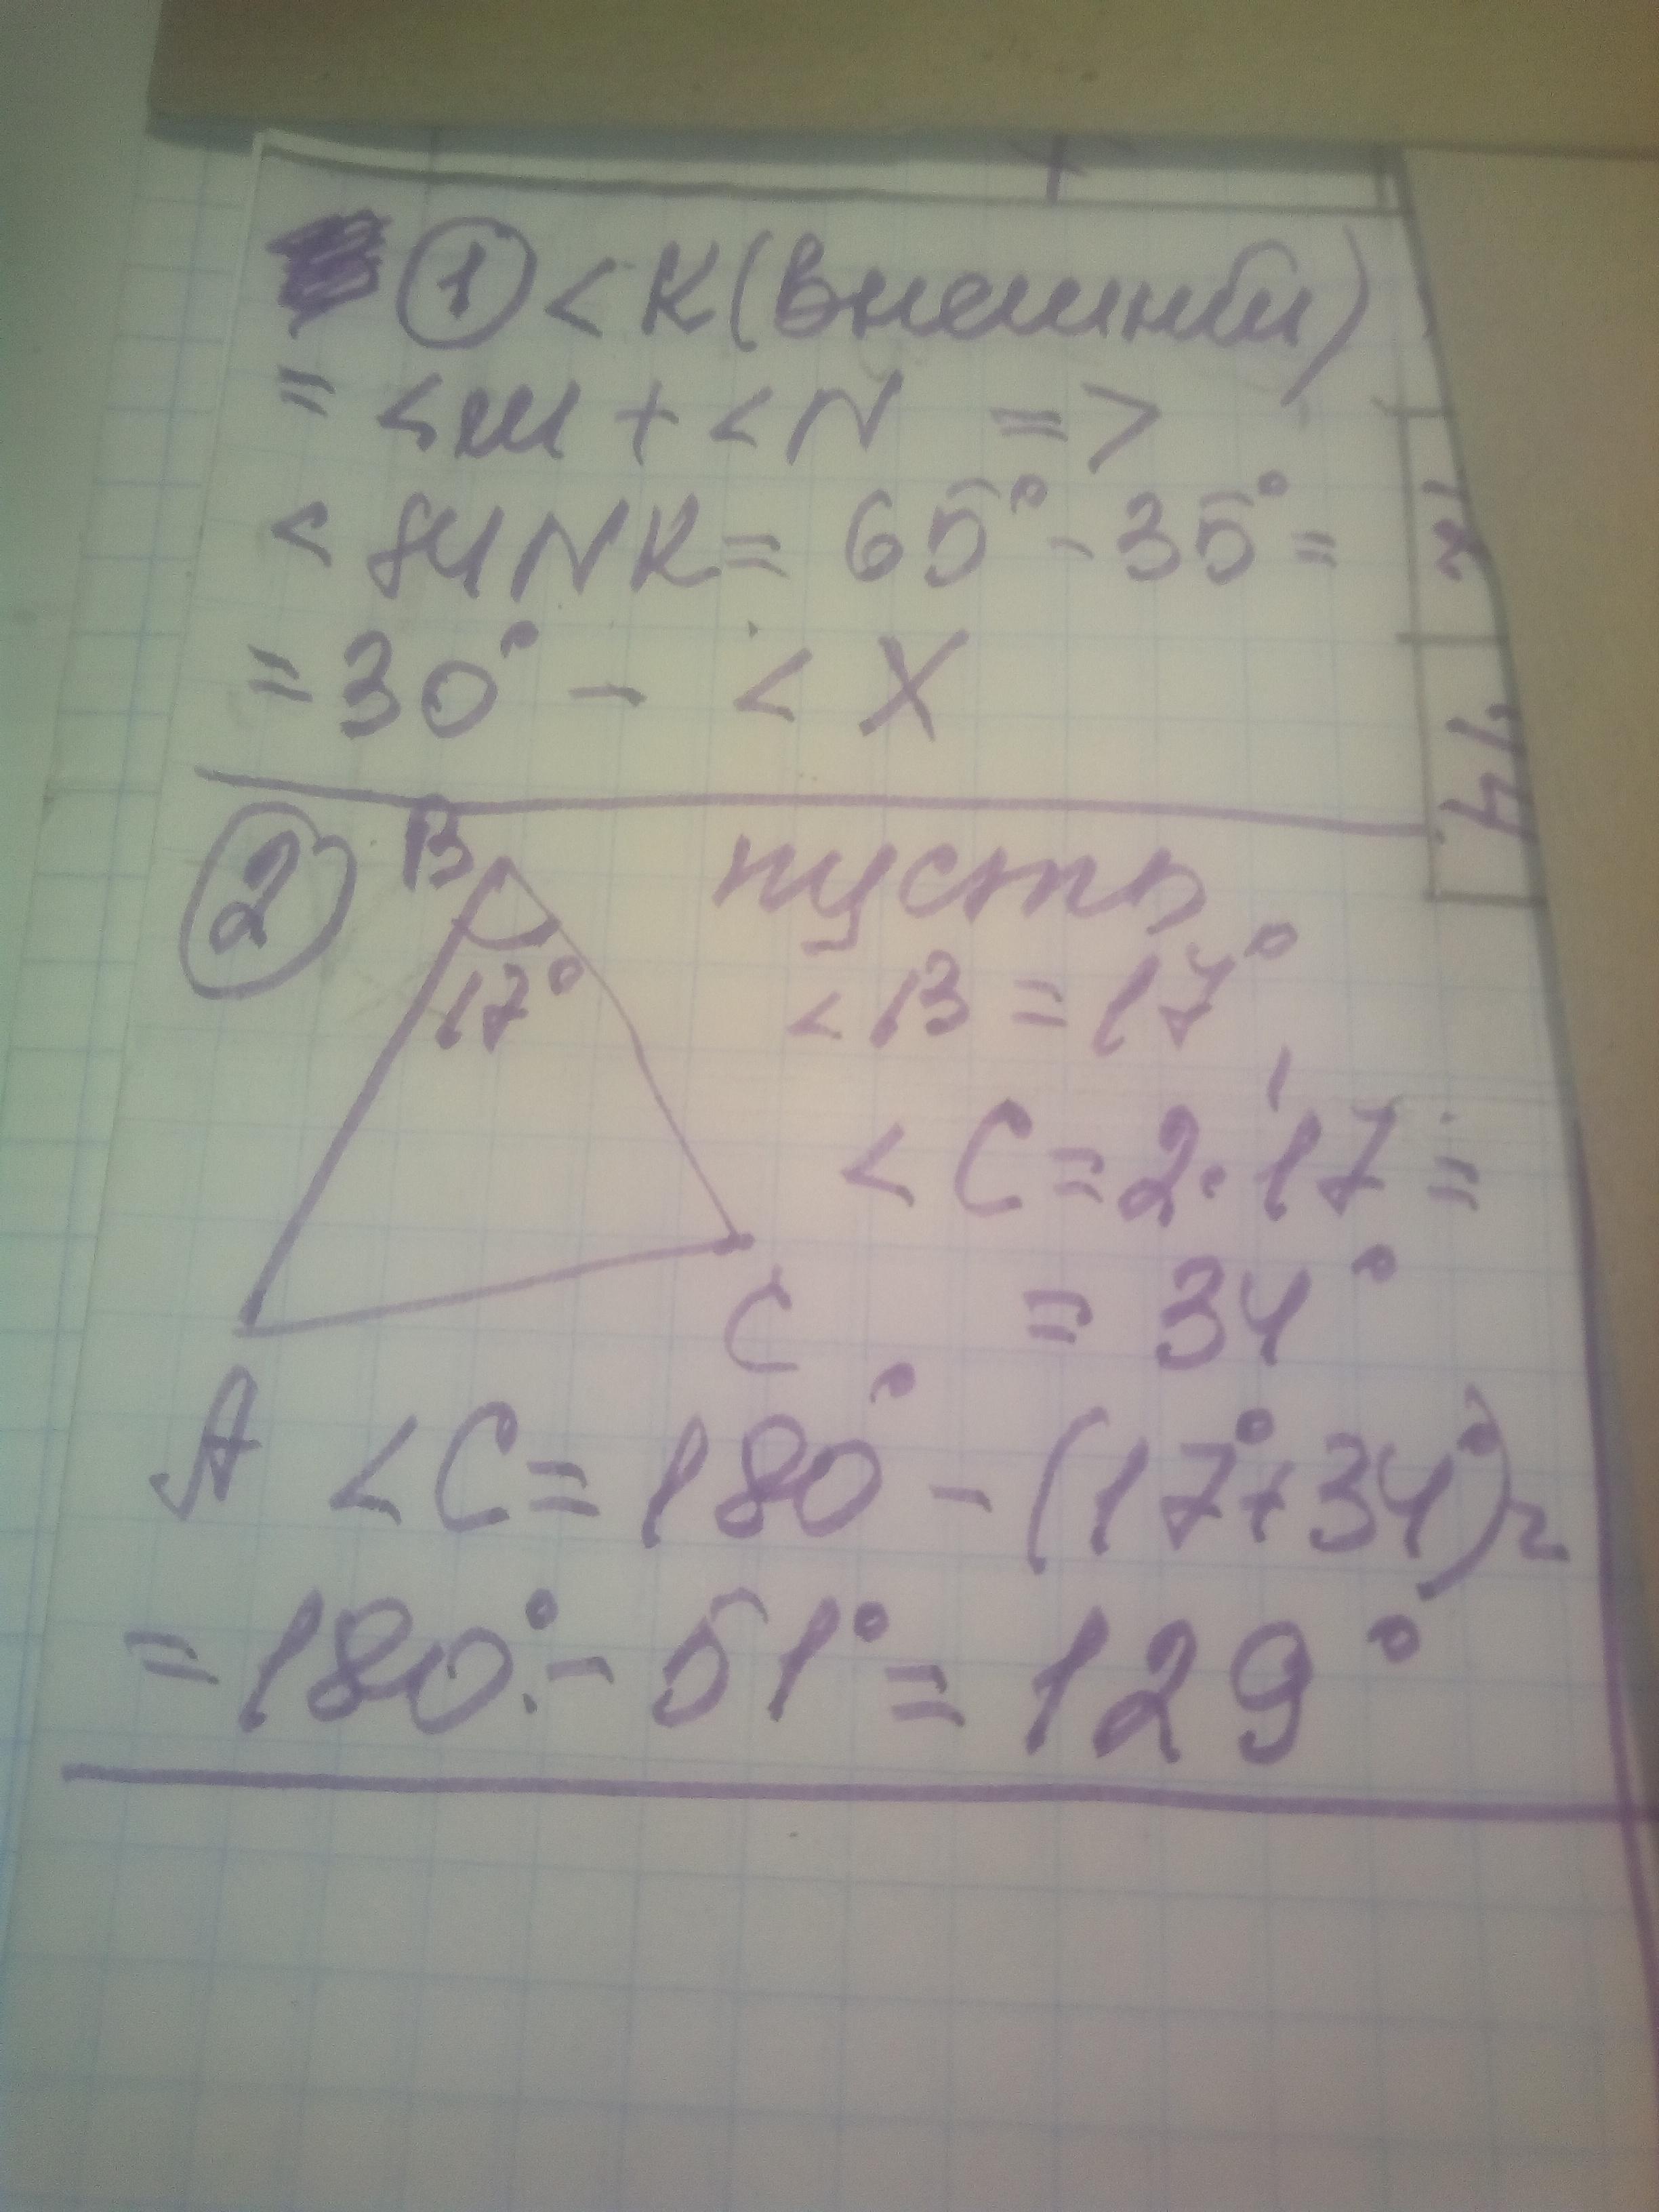 ① < K (внешний)
= < M + < N =>
< MNK = 65° - 35° =
= 30° - < X
② B пусть
17° < B = 17°,
< C = 2 · 17 =
C = 34°
A < C = 180° - (17° + 34°) =
= 180° - 51° = 129°